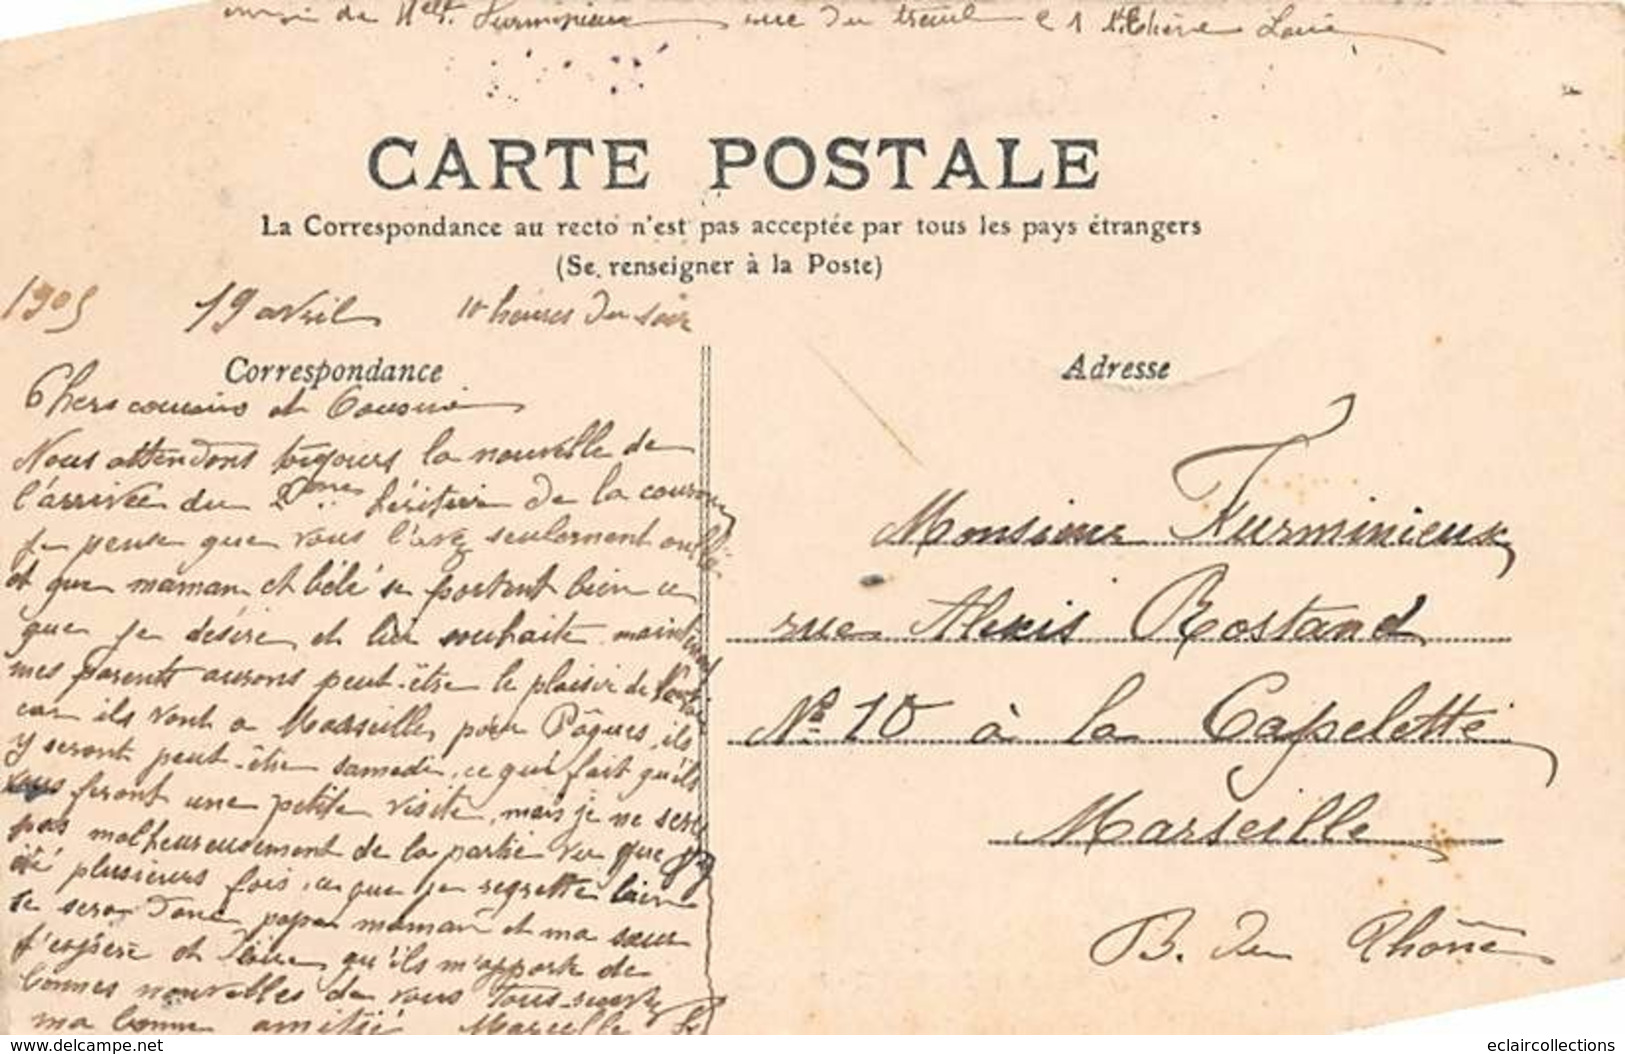 de Furminieux rue du treuil
CARTE POSTALE
La Correspondance au recto n'est pas acceptée par tous les pays étrangers
(Se renseigner à la Poste)
1905 19 avril 10 heures du soir
Correspondance
Chers cousins et Cousine
Nous attendons toujours la nouvelle de
l'arrivée du 2ème héritier de la couronne
je pense que vous l'avez seulement oublié
et que maman et bébé se portent bien ce
que je désire et leur souhaite maintenant
mes parents aurons peut-être le plaisir de
car ils vont a Marseille pour Pâques, ils
y seront peut-être samedi, ce qui fait qu'ils
vous feront une petite visite, mais je ne serai
pas malheureusement de la partie vu que j'y
été plusieurs fois, ce que je regrette bien
ce sera donc papa maman et ma sœur
j'espère et qu'ils m'apporte de
bonnes nouvelles de vous tous recevez
ma bonne amitié
Adresse
Monsieur Furminieux
rue Alexis Rostand
No 10 à la Capelette
Marseille
B. du Rhône
www.delcampe.net
eclaircollections